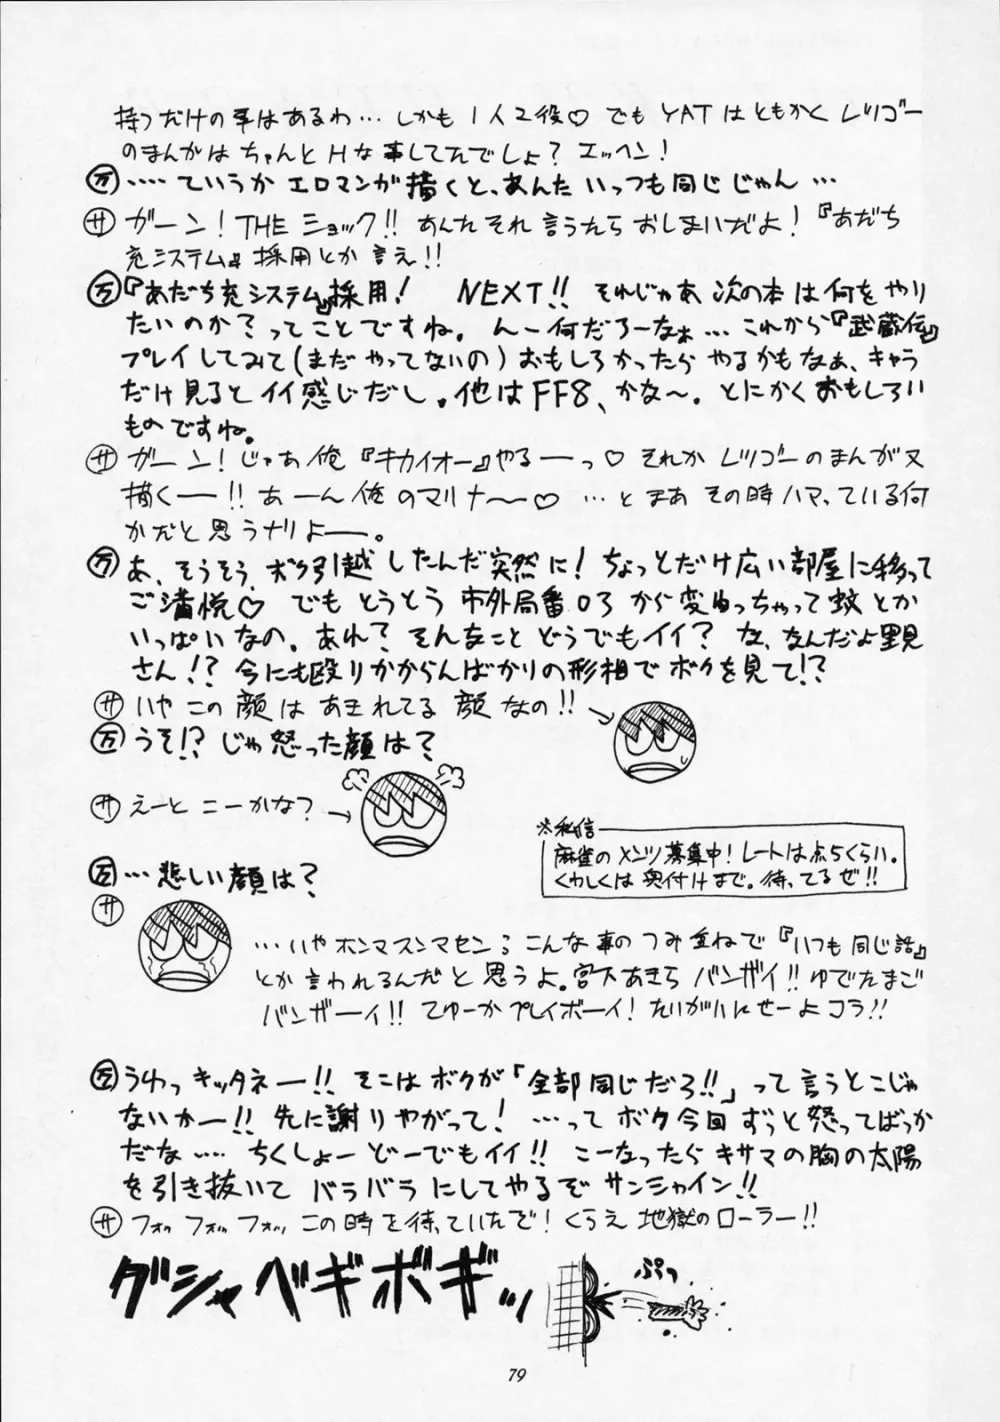 持つだけの事はあるわ…しかも1人2役♡でもYATはともかくレツゴー
のまんがはちゃんとHな事してんでしょ?エッヘン!
万…‥ていうかエロマンガ描くと、あんたいっつも同じじゃん…
サ ガーン!THEショック!!あんたそれ言うたらおしまいだよ!『あだち
充システム』採用とか言え!!
万『あだち充システム』採用! NEXT!! それじゃあ次の本は何をやり
たいのか?ってことですね。んー何だろーなぁ…これから『武蔵伝』
プレイしてみて(まだやってないの)おもしろかったらやるかもなぁ、キャラ
だけ見るとイイ感じだし。他はFF8、かな〜。とにかくおもしろい
ものですね。
サ ガーン!じゃあ俺『キカイオー』やるーっ♡それかレツゴーのまんが又
描くー!!あーん俺のマリナ〜♡…とまあその時ハマっている何
かだと思うナリよー。
万 あ、そうそう、ボク引越したんだ突然に!ちょっとだけ広い部屋に移って
ご満悦♡でもとうとう市外局番03から変わっちゃって蚊とか
いっぱいなの。あれ?そんなことどうでもイイ?な、なんだよ里見
さん!?今にも殴りかからんばかりの形相でボクを見て!?
サ いやこの顔はあきれてる顔なの!!→
万 うそ!?じゃ怒った顔は?
サ えーとこーかな?→
※私信
麻雀のメンツ募集中!レートは点5くらい。
くわしくは奥付けまで。待ってるぜ!!
万…悲しい顔は?
サ
…いやホンマスンマセン;こんな事のつみ重ねで『いつも同じ話』
とか言われるんだと思うよ。宮下あきらバンザイ!!ゆでたまご
バンザーイ!!てゆーかプレイボーイ!たいがいにせーよコラ!!
万 うわっキッタネー!!そこはボクが「全部同じだろ!!」って言うとこじゃ
ないかー!!先に謝りやがって!…ってボク今回ずっと怒ってばっか
だな‥‥ちくしょーどーでもイイ!!こーなったらキサマの胸の太陽
を引き抜いてバラバラにしてやるぞサンシャイン!!
サ フォッフォッフォッこの時を待っていたぞ!くらえ地獄のローラー!!
グシャベギボギッ
ぷっ
79